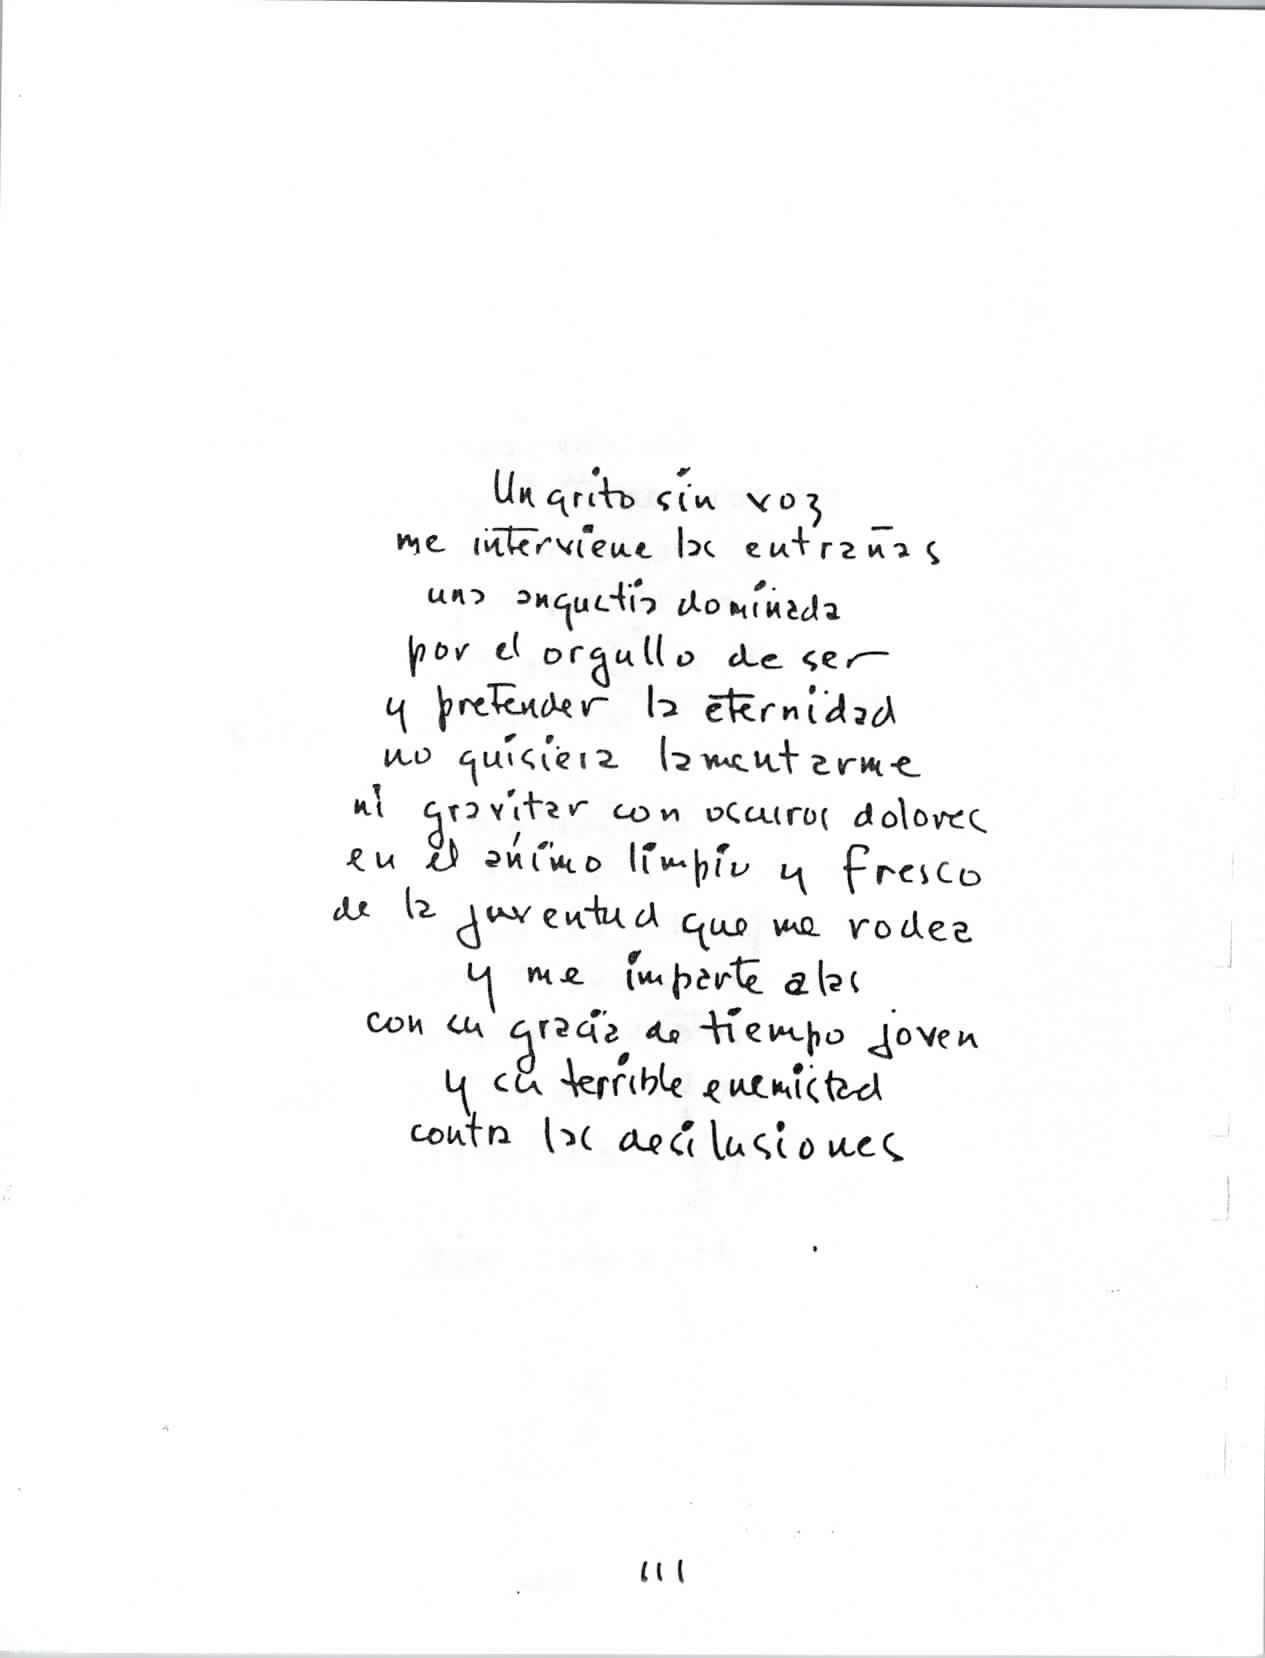 Un grito sin voz
me interviene las entrañas
una angustia dominada
por el orgullo de ser
y pretender la eternidad
no quisiera lamentarme
ni gravitar con oscuros dolores
en el ánimo limpio y fresco
de la juventud que me rodea
y me imparte alas
con su gracia de tiempo joven
y su terrible enemistad
contra las desilusiones
111